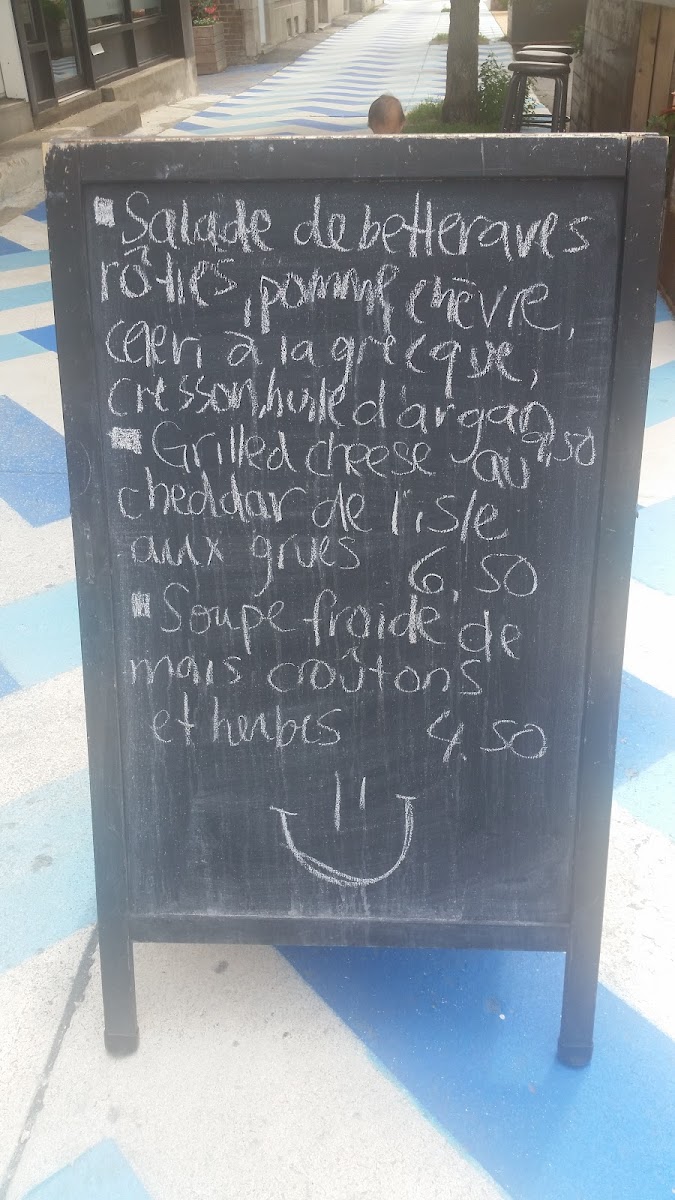 Salade de betteraves
rôties, pomme, chèvre,
céleri à la grecque,
cresson, huile d'argan 9,50
Grilled cheese au
cheddar de l'isle
aux grues 6,50
Soupe froide de
mais croûtons
et herbes 4,50